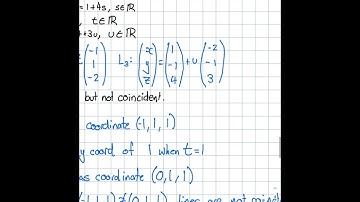 = 1+4s, s∈ℝ
, t∈ℝ
+3u, u∈ℝ
(-1 1 -2) L₃: (x y z) = (1 -1 4) + u (-2 -1 3)
but not coincident.
coordinate (-1, 1, 1)
y coord of 1 when t=1
as coordinate (0, 1, 1)
(-1, 1, 1) ≠ (0, 1, 1) lines are not coinc